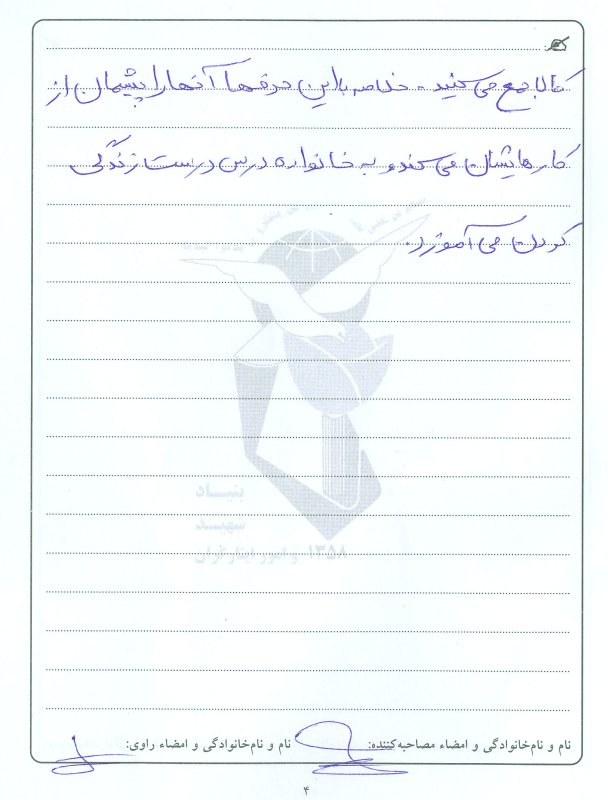 کالا جمع می کنید. خلاصه با این حرفها آنها را پشیمان از
کارهایشان می کند و به خانواده درس درست زندگی
کردن می آموزد.
بنیاد
شهید
و امور ایثارگران ۱۳۵۸
نام و نام‌خانوادگی و امضاء مصاحبه‌کننده: نام و نام‌خانوادگی و امضاء راوی:
۴